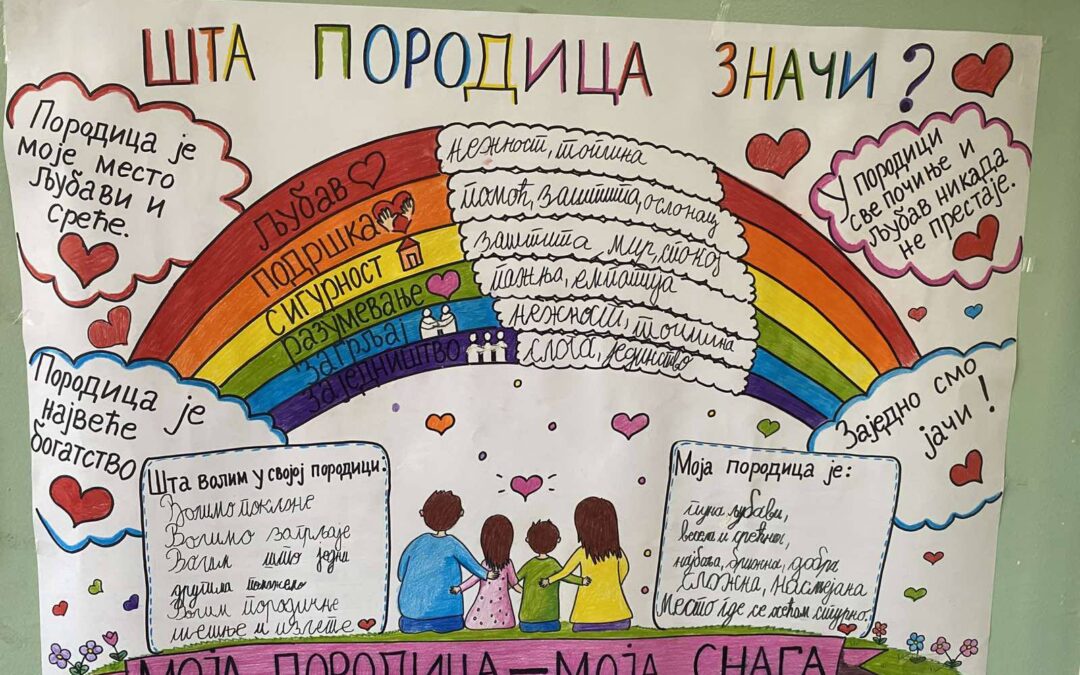 ШТА ПОРОДИЦА ЗНАЧИ?
Породица је
моје место
љубави и
среће.
У породици
све почиње и
љубав никада
не престаје.
Љубав
нежност, топлина
подршка
помоћ, заштита, ослонац
сигурност
заштита, мир, спокој
разумевање
пажња, емпатија
загрљај
нежност, топлина
заједништво
слога, јединство
Породица је
највеће
богатство
Заједно смо
јачи!
Шта волим у својој породици:
Волимо поклоне
Волимо загрљаје
Волим што једни
другима
Волим породичне
шетње и излете
Моја породица је:
пуна љубави,
весели и срећни,
најбоља, брижна, добра
сложна, насмејана
Место где се осећам сигурно.
МОЈА ПОРОДИЦА — МОЈА СНАГА